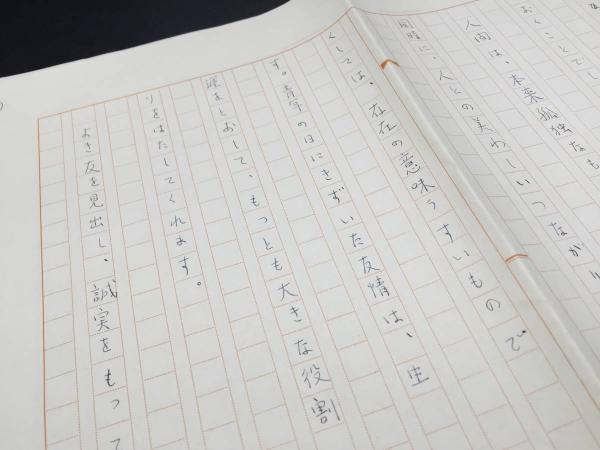 おくことでし
人間は、本来孤独なも
同時に、人との美わしいつながり
くしては、存在の意味うすいもので
す。青年の日にきずいた友情は、生
涯をとおして、もっとも大きな役割
りをはたしてくれます。
よき友を見出し、誠実をもって